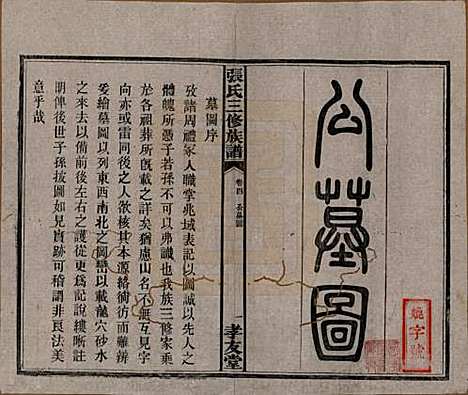 公墓圖
堯字號
張氏三修族譜
卷四
公墓圖
一
孝友堂
墓圖序
攷諸周禮冢人職掌兆域表記以圖誠以先人之
體魄所憑子若孫不可弗識也我族三修家乘
於各祖葬所旣載之詳矣猶慮山名不無互見字
向亦或雷同後之人欲核其本源絡衛彷而難辨
爰繪墓圖以列東西南北之岡巒以載龍穴砂水
之來去以備前後左右之護從更爲記纔縷與
朗俾後世子孫披圖如見實跡可稽謂非良法美
意乎哉